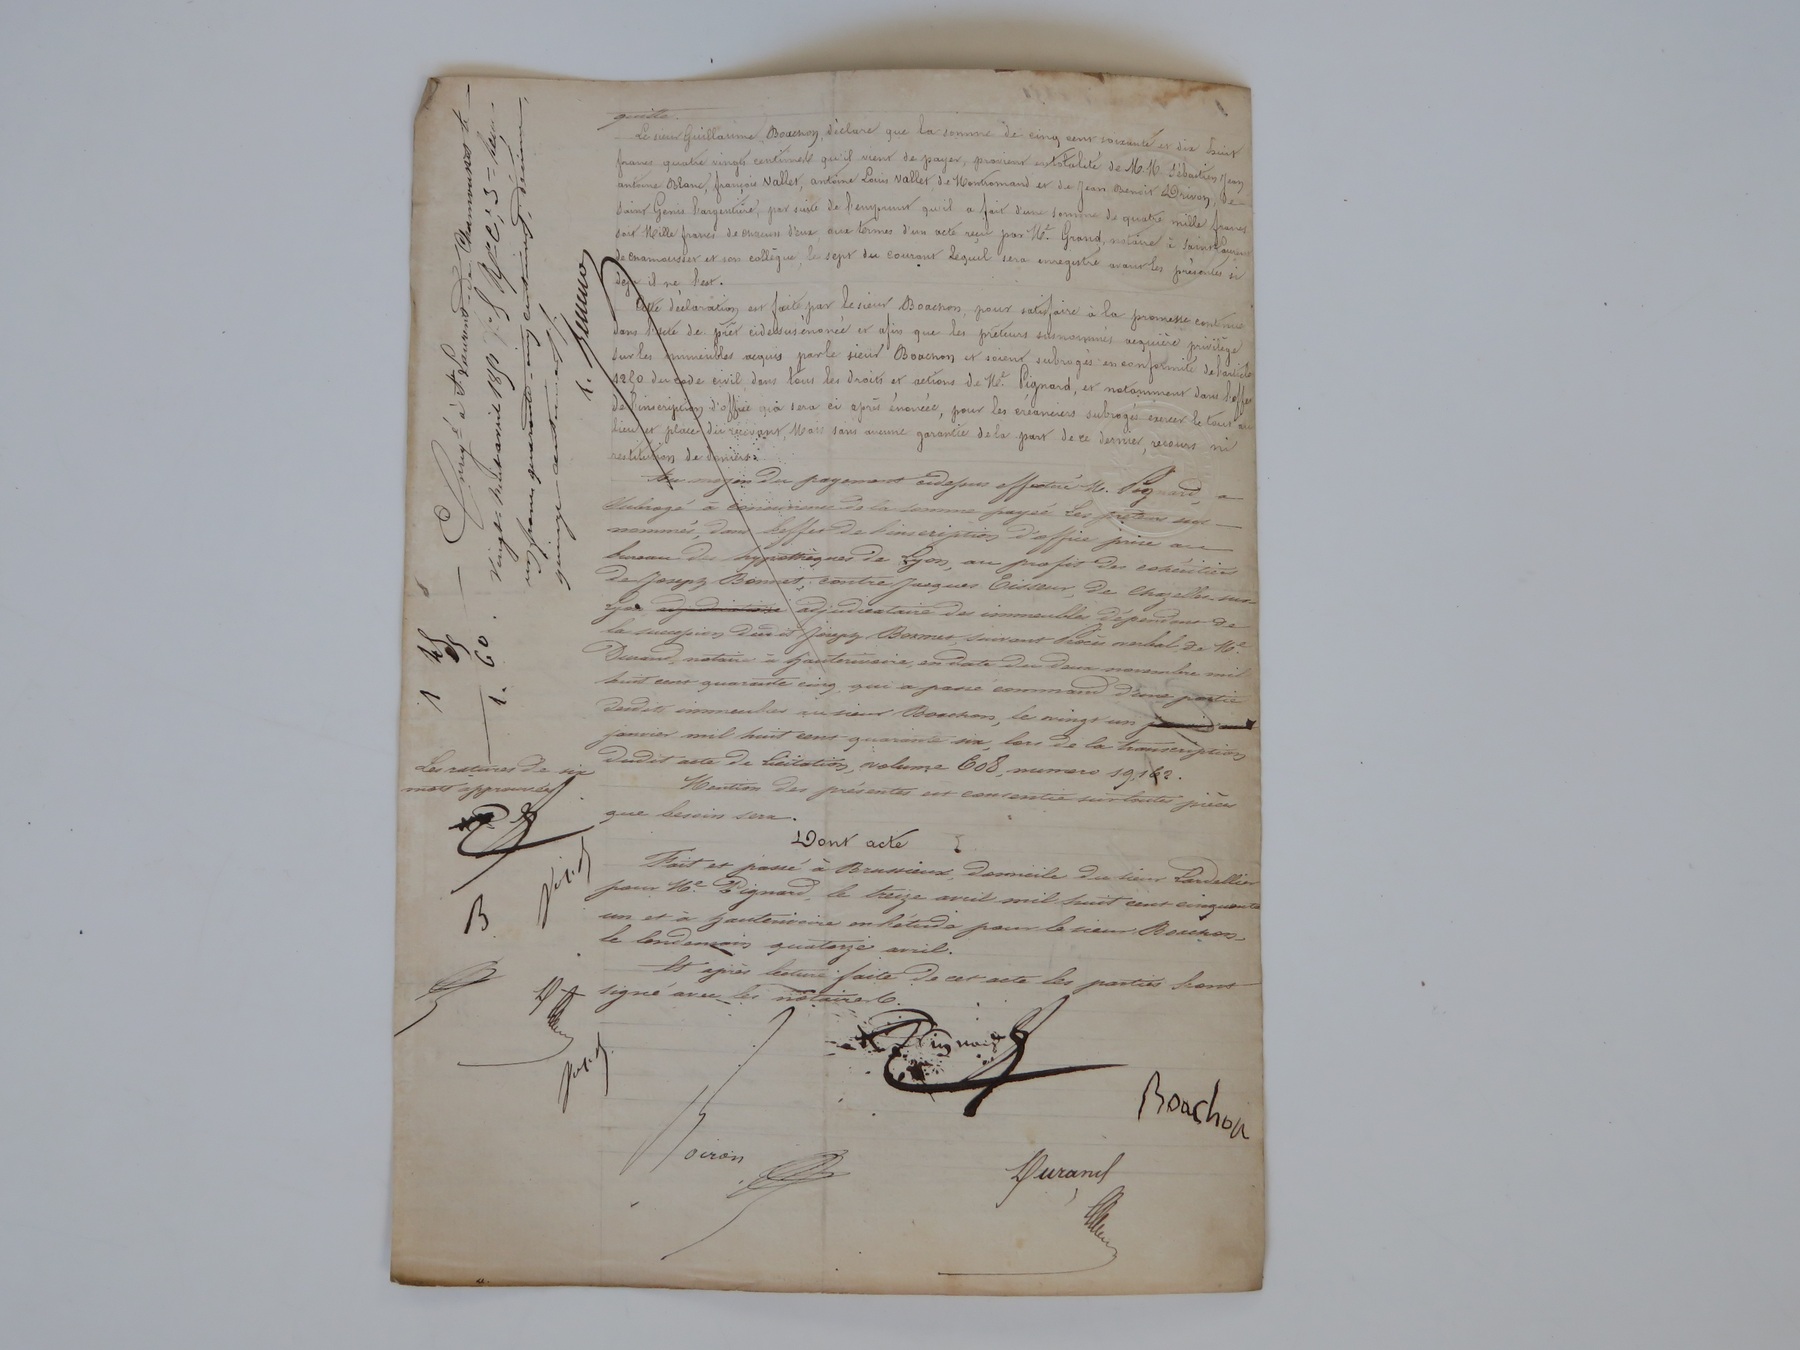 quitte.
Le sieur Guillaume Boachon, déclare que la somme de cinq cent soixante et dix huit
francs quatre vingt centimes qu'il vient de payer, provient en totalité de M.M. Sébastien Jean
antoine Blanc, françois Vallet, antoine Louis Vallet de Montromand et de Jean Benoit Drivon, de
Saint Genis l'argentière, par suite de l'emprunt qu'il a fait d'une somme de quatre mille francs
soit Mille francs de chacun d'eux, aux termes d'un acte reçu par Me. Grand, notaire à Saint Laurent
de chamousset et son collègue, le sept du courant lequel sera enregistré avant les présentes si
déja il ne l'est.
Cette déclaration est faite par le sieur Boachon, pour satisfaire à la promesse contenue
dans l'acte de prêt cidessus énoncé et afin que les prêteurs susnommés acquière privilège
sur les immeubles acquis par le sieur Boachon et soient subrogés en conformité de l'article
1250 du code civil, dans tous les droits et actions de Me. Pignard, et notamment dans l'effet
de l'inscription d'office qui sera ci après énoncée, pour les créanciers subrogés exercer le tout au
lieu et place du recevant, Mais sans aucune garantie de la part de ce dernier, recours ni
restitution de deniers.
Au moyen du payement cidessus effectué M. Pignard, a
subrogé à concurrence de la somme payée les prêteurs sus
nommés, dans l'effet de l'inscription d'office prise au
bureau des hypothèques de Lyon, au profit des cohéritiers
de Joseph Bonnet, contre Jacques Tisseur, de Chazelles-sur-
Lyon adjudicataire des immeubles dépendant de
la succession dudit Joseph Bonnet, suivant Procès verbal de Me.
Durand, notaire à hauterivoire, en date du deux novembre mil
huit cent quarante cinq, qui a passé command d'une partie
desdits immeubles au sieur Boachon, le vingt un
janvier mil huit cent quarante six, lors de la transcription
dudit acte de licitation, volume 608, numero 19,162.
Mention des présentes est consentie sur toutes pièces
que besoin sera.
Dont acte
Fait et passé à Brussieux, domicile du sieur Lardellier
pour Me. Pignard, le treize avril mil huit cent cinquante
un et à hauterivoire en l'étude pour le sieur Boachon
le lendemain quatorze avril.
Et après lecture faite de cet acte les parties l'ont
signé avec les notaires.
Pignard
Boachon
Boiron
Durand
Les ratures de six
mots approuvées
B
Enregé à St Laurent de Chamousset le
vingt huit avril 1851 C, 5
un franc quarante-cinq centimes, décime
quinze centimes.
1 45
1. 60.